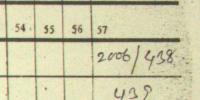 54 55 56 57
2006/438
439